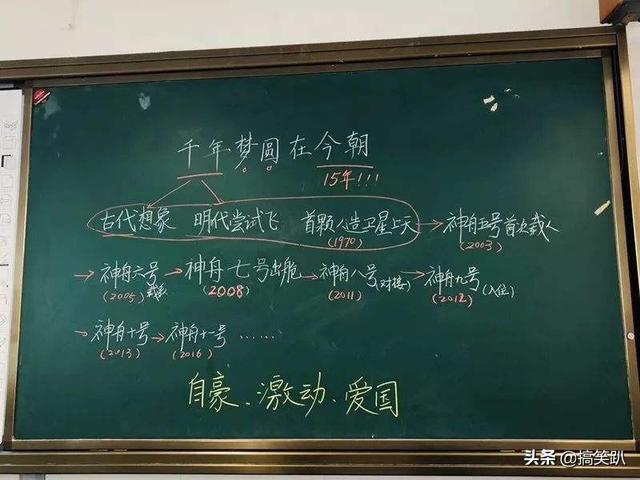 千年梦圆在今朝
15年!!!
古代想象 明代尝试飞 首颗人造卫星上天 → 神舟五号首次载人
(1970) (2003)
→ 神舟六号 → 神舟七号出舱 → 神舟八号(对接) → 神舟九号(入位)
(2005) (2008) (2011) (2012)
→ 神舟十号 → 神舟十一号 ……
(2013) (2016)
自豪、激动、爱国
头条 @搞笑趴